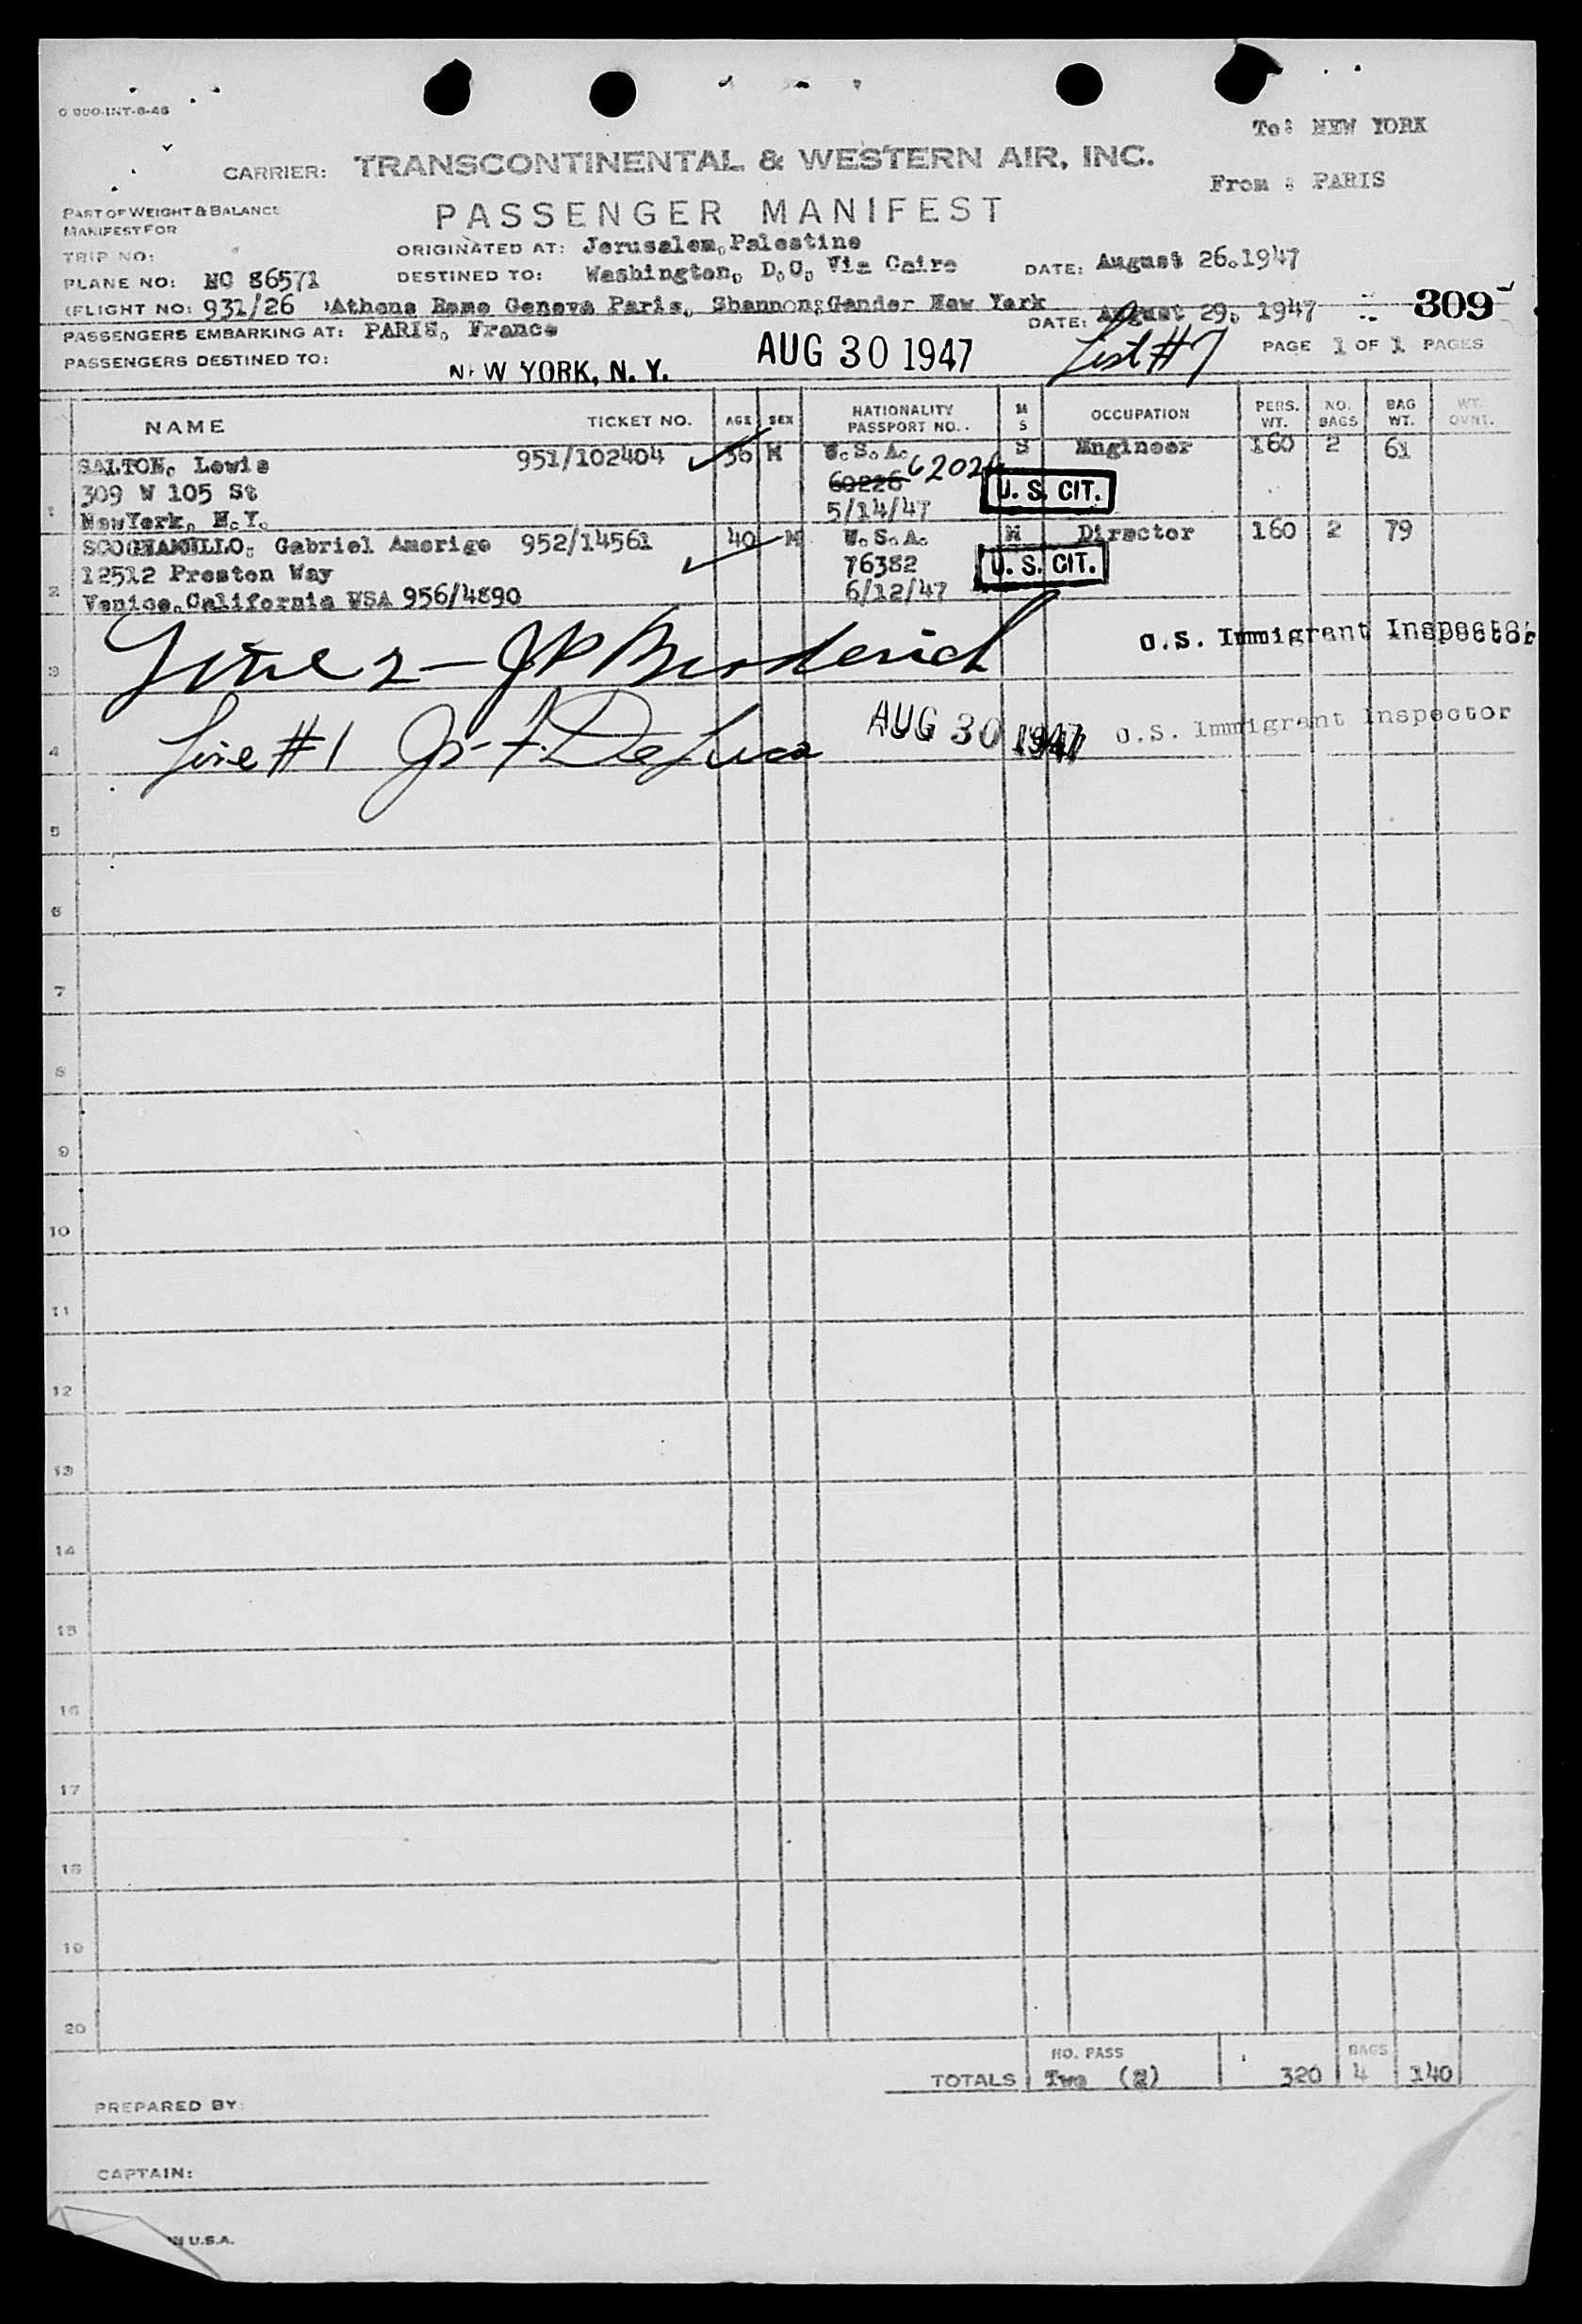 0 900-INT-8-46
To: NEW YORK
CARRIER: TRANSCONTINENTAL & WESTERN AIR, INC.
From : PARIS
PART OF WEIGHT & BALANCE
MANIFEST FOR
PASSENGER MANIFEST
TRIP NO:
ORIGINATED AT: Jerusalem, Palestine
PLANE NO: NC 86571
DESTINED TO: Washington, D.C, Via Cairo
DATE: August 26.1947
(FLIGHT NO: 931/26 Athens Rome Geneva Paris, Shannon; Gander New York
DATE: August 29, 1947
309
PASSENGERS EMBARKING AT: PARIS, France
PASSENGERS DESTINED TO: NEW YORK, N. Y.
AUG 30 1947
List #7
PAGE 1 OF 1 PAGES
NAME TICKET NO. AGE SEX NATIONALITY PASSPORT NO.. M S OCCUPATION PERS. WT. NO. BAGS BAG WT. WT. OVNT.
1 SALTON, Lewis 951/102404 36 M U.S.A. S Engineer 160 2 61
309 W 105 St 60226 U. S. CIT.
NewYork, N.Y. 5/14/47
2 SCOGNAMILLO, Gabriel Amerigo 952/14561 40 M U.S.A. M Director 160 2 79
12512 Preston Way 76382 U. S. CIT.
Venice,California USA 956/4890 6/12/47
3 Line 2 - JP Broderick U.S. Immigrant Inspector
4 Line #1 Js. F. DeLuca AUG 30 1947 U.S. Immigrant Inspector
5
6
7
8
9
10
11
12
13
14
15
16
17
18
19
20
TOTALS NO. PASS Two (2) 320 BAGS 4 140
PREPARED BY:
CAPTAIN:
IN U.S.A.